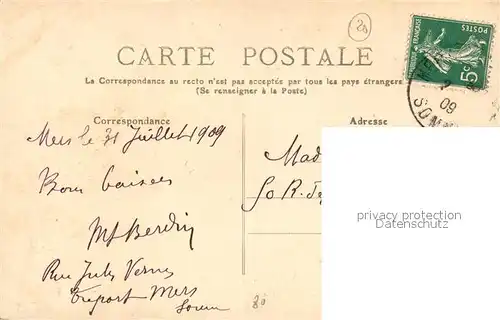 20
CARTE POSTALE
La Correspondance au recto n'est pas acceptée par tous les pays étrangers
(Se renseigner à la Poste)
RÉPUBLIQUE FRANÇAISE
POSTES
5c
09
SOMME
Correspondance
Adresse
Mers le 31 Juillet 1909
Bons baisers
Mad
50 R.
privacy protection
Datenschutz
Rue Jules Vernes
Tréport Mers
Somme
80